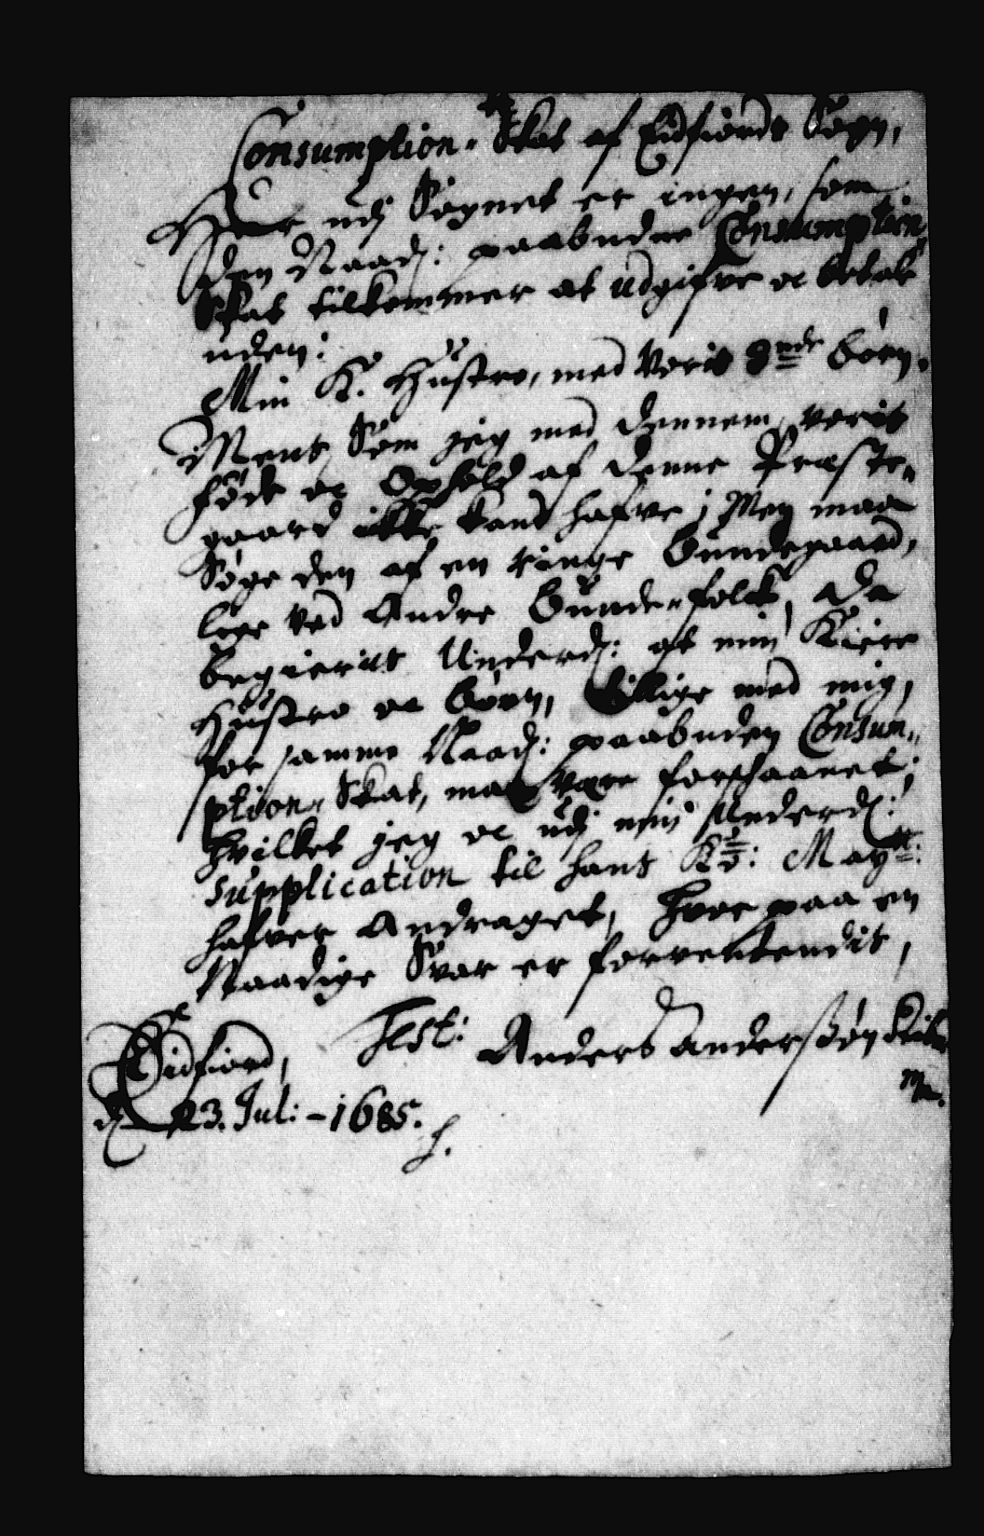 Consumption-Skat af Eidfiords Sogn,
Her udj Sognet er ingen, som
den Naad: paabudne Consumption
Skat tilkommer at udgifve oc betale
uden:
Min K. Hustro, med voris 8nde börn.
Ment Som jeg med dennem voris
föde oc Ophold af denne Præste-
gaard ikke kand hafve; Men maa
Söge den af en ringe bundegaard,
lige ved Andre Bunde-folck, Da
begieris Underd: at min Kiere
Hustro oc börn, tillige med mig,
for samme Naad: paabuden Consum-
ption-Skat, maa være forskaanet;
hvilket jeg oc udj min Underd:
Supplication til hans Ko: Maytt:
hafver Andraget, hvor paa en
Naadige Svar er forventendis,
Eidfiord, Test: Anders Anderssön
d 23. Jul: - 1685. mp.